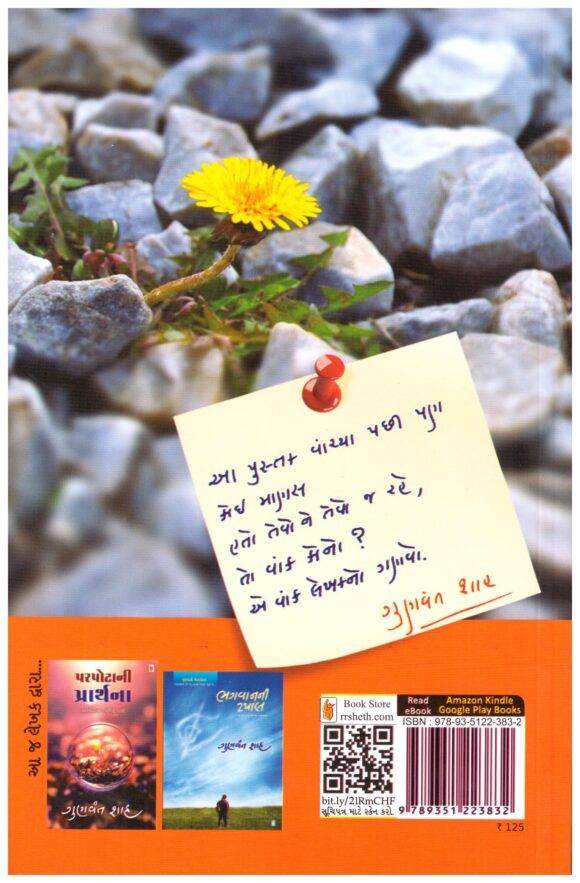 આ પુસ્તક વાંચ્યા પછી પણ
કોઈ માણસ
હતો તેવો ને તેવો જ રહે,
તો વાંક કોનો ?
એ વાંક લેખકનો ગણવો.
ગુણવંત શાહ
આ જ લેખક દ્વારા...
પરપોટાની
પ્રાર્થના
ગુણવંત શાહ
ભગવાનની
ટપાલ
ગુણવંત શાહ
Book Store
rrsheth.com
Read
eBook
Amazon Kindle
Google Play Books
ISBN : 978-93-5122-383-2
bit.ly/2lRmCHF
સૂચિપત્ર માટે સ્કેન કરો.
9 789351 223832
₹ 125